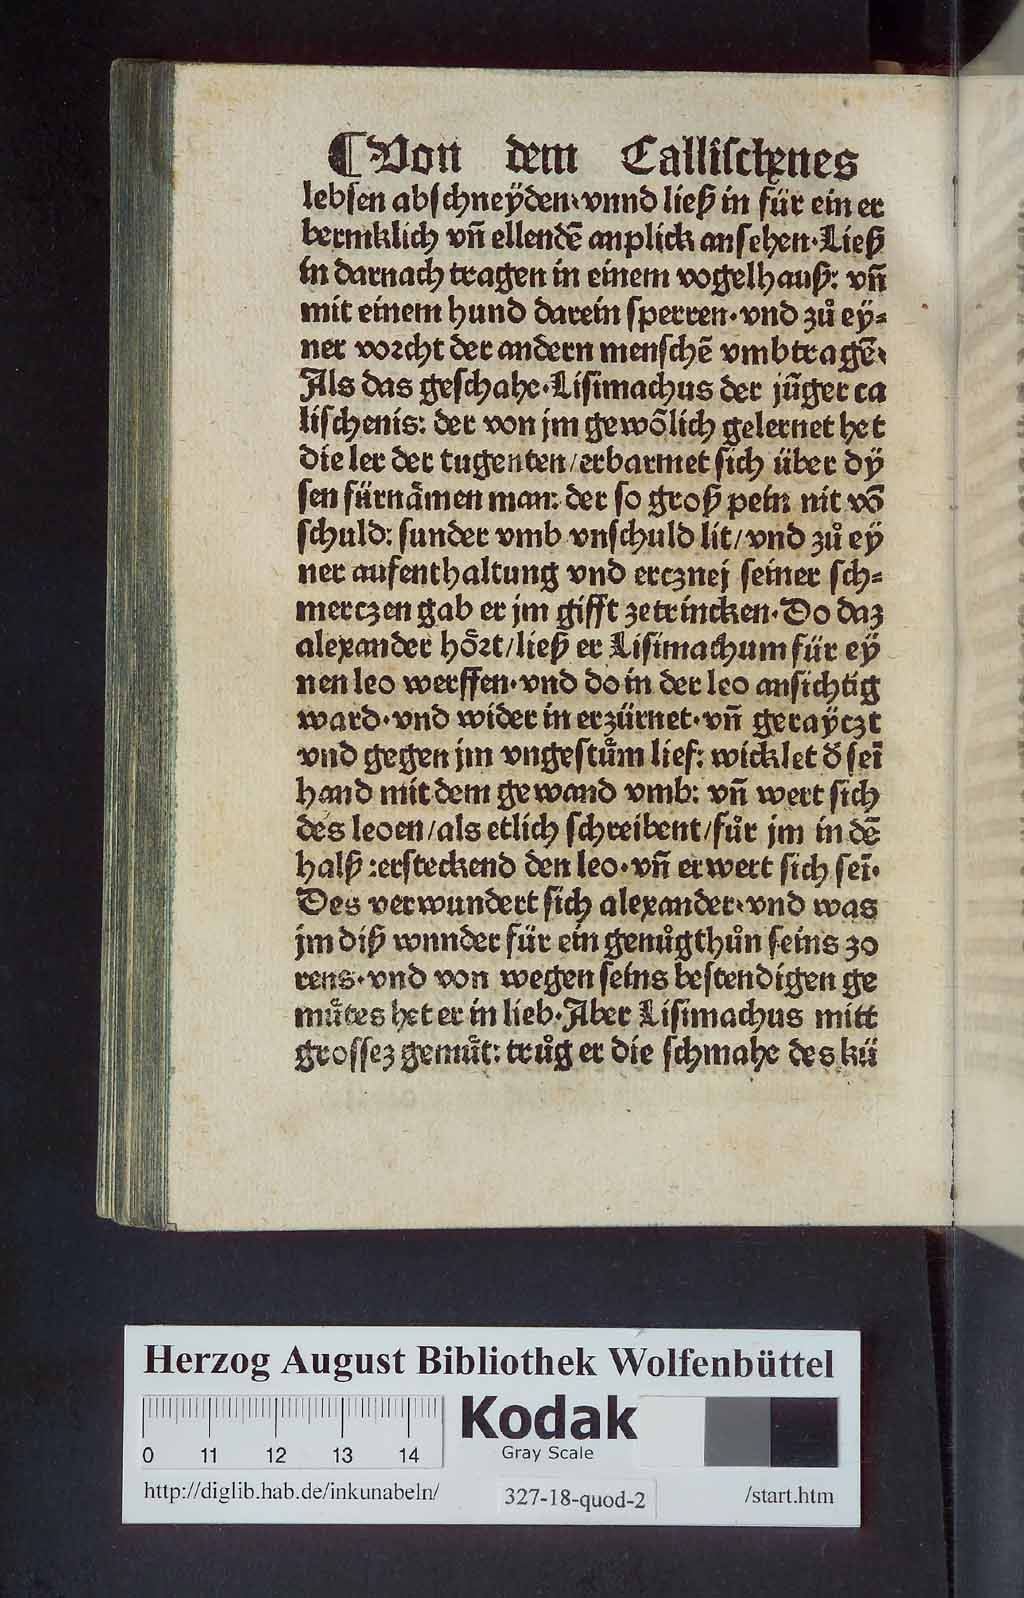 ¶ Von dem Callischenes
lebsen abschneÿden· vnnd ließ in für ein er
bermklich vñ ellendē anplick ansehen· Ließ
in darnach tragen in einem vogelhauß: vñ
mit einem hund darein sperren· vnd zů eÿ⸗
ner vorcht der andern menschē vmbtragē·
Als das geschahe· Lisimachus der jūger ca
lischenis: der von jm gewōlich gelernet het
die ler der tugenten/ erbarmet sich über dÿ
sen fürnämen man: der so groß pein nit vō
schuld: sunder vmb vnschuld lit/ vnd zů eÿ
ner aufenthaltung vnd ercznej seiner sch⸗
merczen gab er jm gifft zetrincken· Do daz
alexander hört/ ließ er Lisimachum für eÿ
nen leo werffen· vnd do in der leo ansichtig
ward· vnd wider in erzürnet· vñ geraÿczt
vnd gegen jm vngestům lief: wicklet d̕ sei̅
hand mit dem gewand vmb: vñ wert sich
des leoen/ als etlich schreibent/ fůr jm in dē
halß :ersteckend den leo· vñ erwert sich sei̅·
Des verwundert sich alexander· vnd was
jm diß wnnder für ein genůgthůn seins zo
rens· vnd von wegen seins bestendigen ge
mütes het er in lieb· Aber Lisimachus mitt
grossez gemüt: trůg er die schmahe des kü
Herzog August Bibliothek Wolfenbüttel
0 11 12 13 14
Kodak
Gray Scale
http://diglib.hab.de/inkunabeln/ 327-18-quod-2 /start.htm